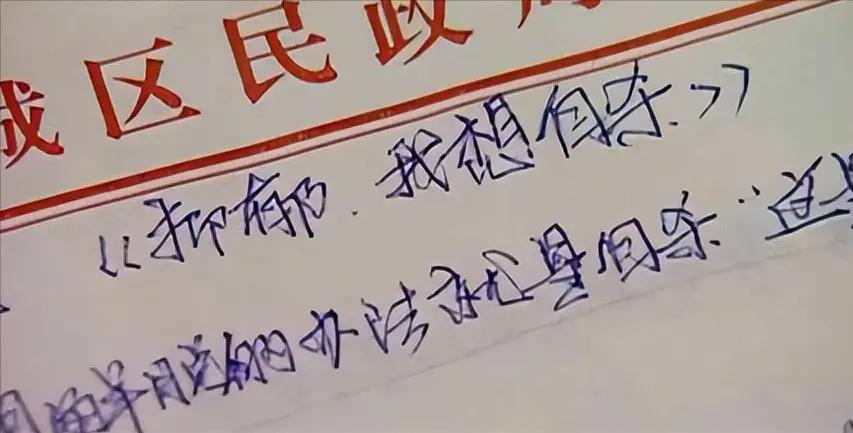 城区民政局
《抑郁.我想自杀.》
解脱的办法就是自杀."这是